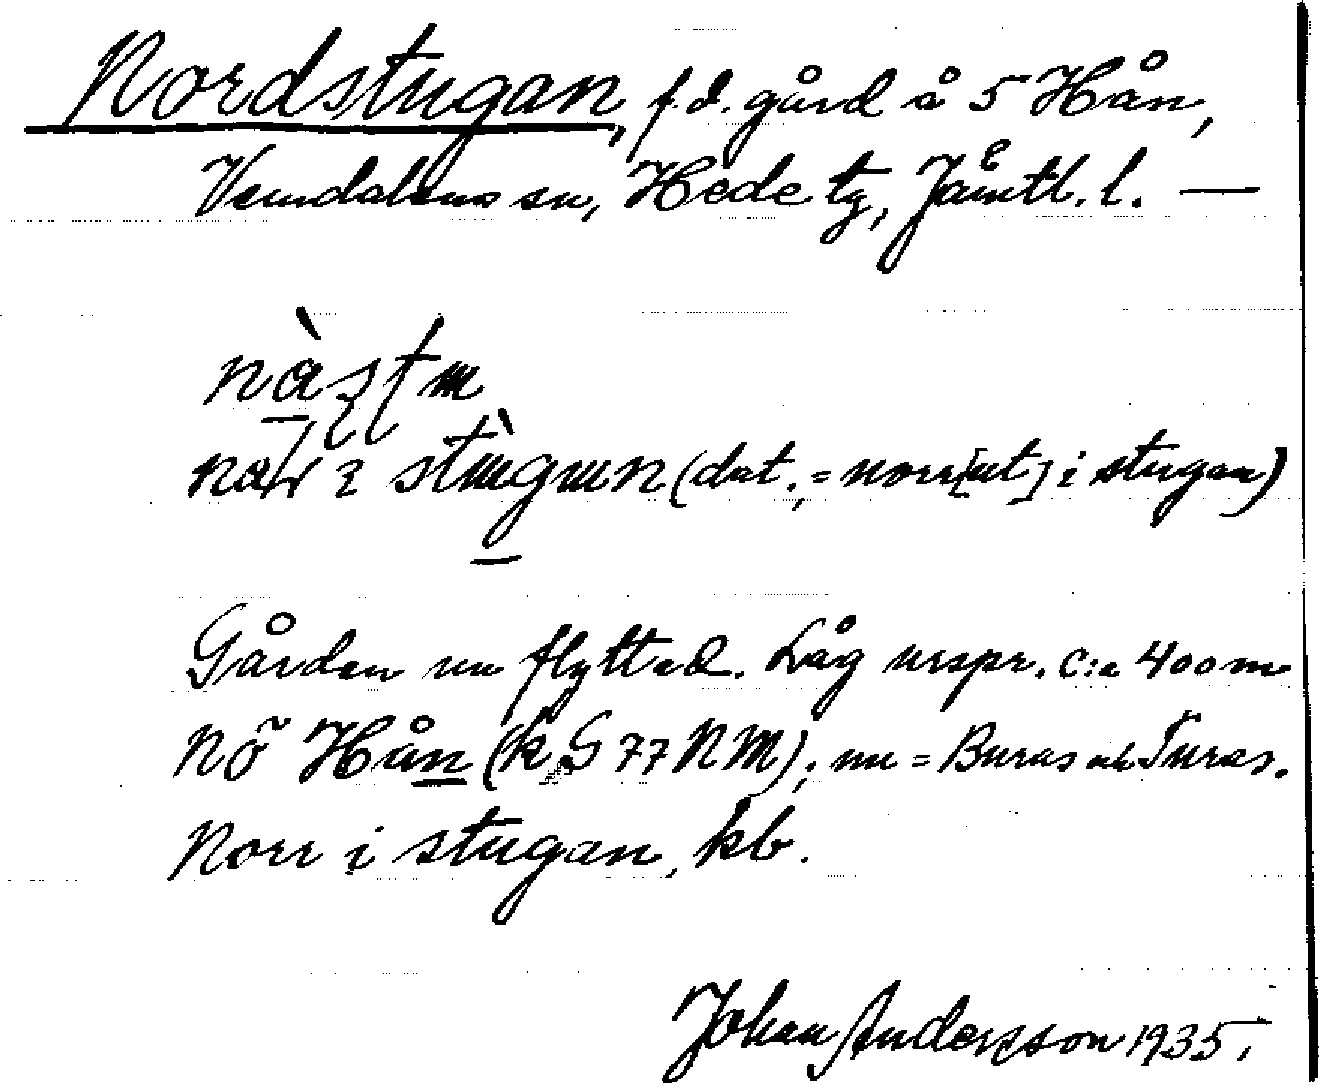 Nordstugan, f.d. gård å 5 Hån,
Vemdalens sn, Hede tg, Jämtl. l. —
stùgun (dat., = norr[ut] i stugan)
Gården nu flyttad. Låg urspr. c:a 400 m
NÖ Hån (k, G 77 NM); nu = Buras och Turas.
Norr i stugan, kb.
Johan Andersson 1935.